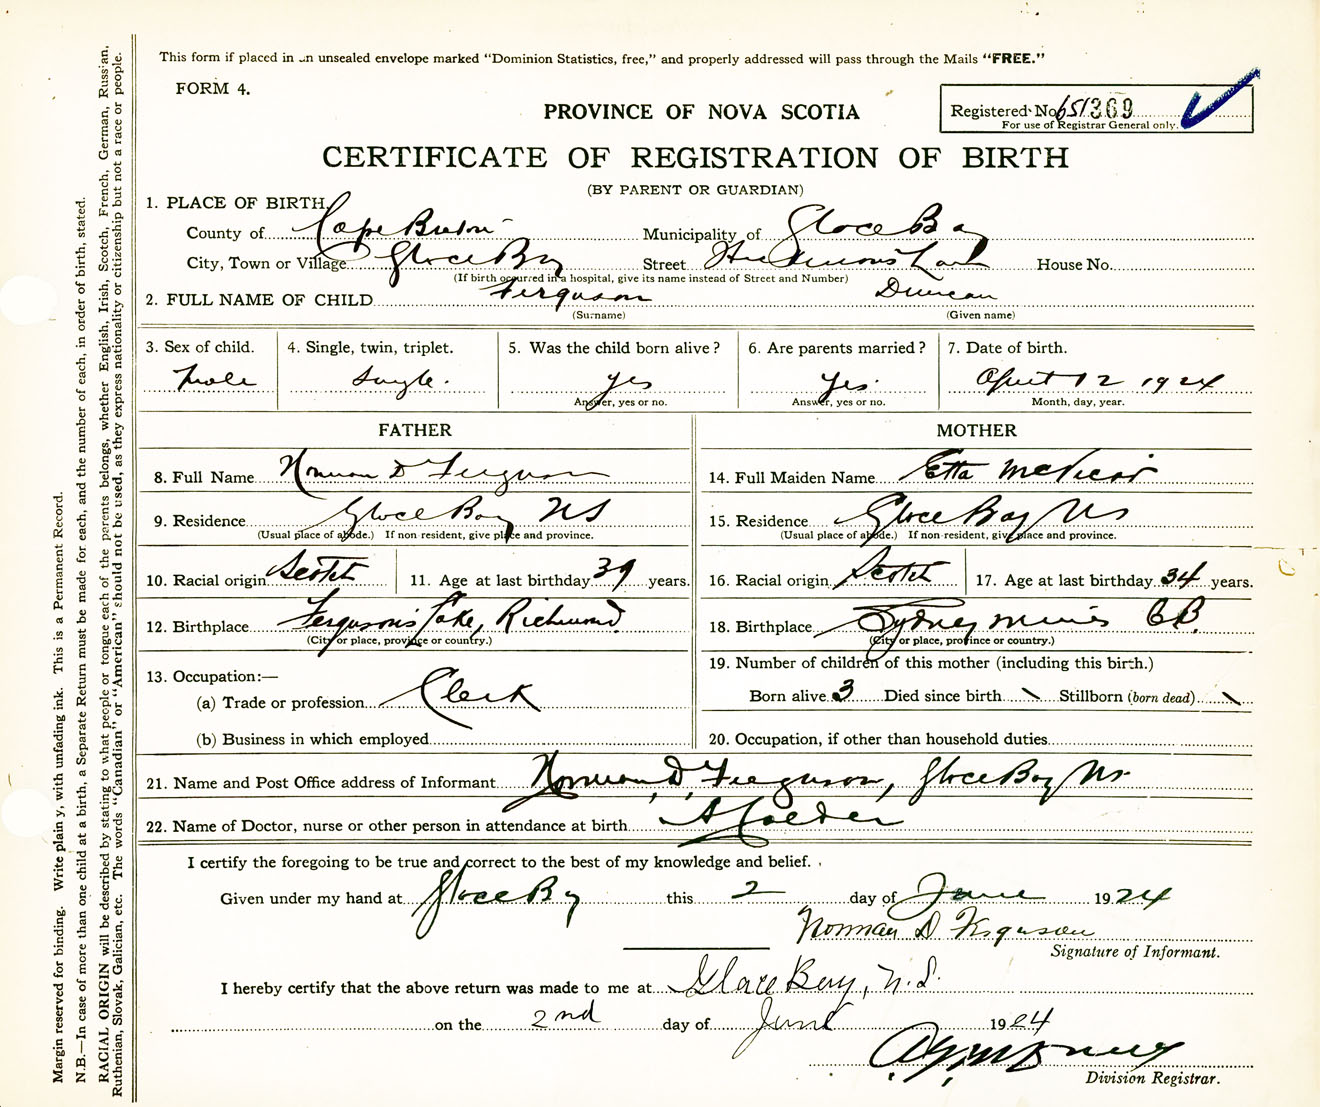 This form if placed in an unsealed envelope marked "Dominion Statistics, free," and properly addressed will pass through the Mails "FREE."
FORM 4.
PROVINCE OF NOVA SCOTIA
Registered No. 651369
For use of Registrar General only.
CERTIFICATE OF REGISTRATION OF BIRTH
(BY PARENT OR GUARDIAN)
1. PLACE OF BIRTH
County of Cape Breton Municipality of Glace Bay
City, Town or Village Glace Bay Street House No.
(If birth occurred in a hospital, give its name instead of Street and Number)
2. FULL NAME OF CHILD Ferguson Duncan
(Surname) (Given name)
3. Sex of child. 4. Single, twin, triplet. 5. Was the child born alive? 6. Are parents married? 7. Date of birth.
Male Single. Yes Yes. April 12 1924
Answer, yes or no. Answer, yes or no. Month, day, year.
FATHER MOTHER
8. Full Name Norman D Ferguson 14. Full Maiden Name Etta McVicar
9. Residence Glace Bay NS 15. Residence Glace Bay NS
(Usual place of abode.) If non resident, give place and province. (Usual place of abode.) If non-resident, give place and province.
10. Racial origin Scotch 11. Age at last birthday 39 years. 16. Racial origin Scotch 17. Age at last birthday 34 years.
12. Birthplace Ferguson's Lake, Richmond. 18. Birthplace Sydney Mines CB.
(City or place, province or country.) (City or place, province or country.)
13. Occupation:— 19. Number of children of this mother (including this birth.)
(a) Trade or profession Clerk Born alive 3 Died since birth \ Stillborn (born dead) \
(b) Business in which employed 20. Occupation, if other than household duties
21. Name and Post Office address of Informant Norman D. Ferguson, Glace Bay NS
22. Name of Doctor, nurse or other person in attendance at birth A Calder
I certify the foregoing to be true and correct to the best of my knowledge and belief.
Given under my hand at Glace Bay this 2 day of June 1924
Norman D Ferguson
Signature of Informant.
I hereby certify that the above return was made to me at Glace Bay, N.S.
on the 2nd day of June 1924
Division Registrar.
Margin reserved for binding. Write plainly, with unfading ink. This is a Permanent Record.
N.B.—In case of more than one child at a birth, a Separate Return must be made for each, and the number of each, in order of birth, stated.
RACIAL ORIGIN will be described by stating to what people or tongue each of the parents belongs, whether English, Irish, Scotch, French, German, Russian,
Ruthenian, Slovak, Galician, etc. The words "Canadian" or "American" should not be used, as they express nationality or citizenship but not a race or people.